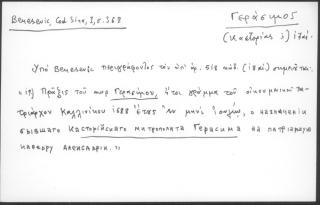 Beneševič, Cod Sino, I, σ. 368
Γεράσιμος
(Καστορίας;) ιζ' αι.
Ὑπὸ Beneševič περιγράφοντος τὸν ὑπ' ἀρ. 518 κώδ. (ιζ' αι)
"19) Πρᾶξις τοῦ κυρ Γερασίμου, ἤτοι γράμμα τοῦ οἰκουμενικοῦ πα-
τριάρχου Καλλινίκου 1688 ἔτους ἐν μηνὶ Ἰουλίῳ, о назначении
бывшаго Касторійскаго митрополита Герасима на патріаршую
каѳедру Александріи."